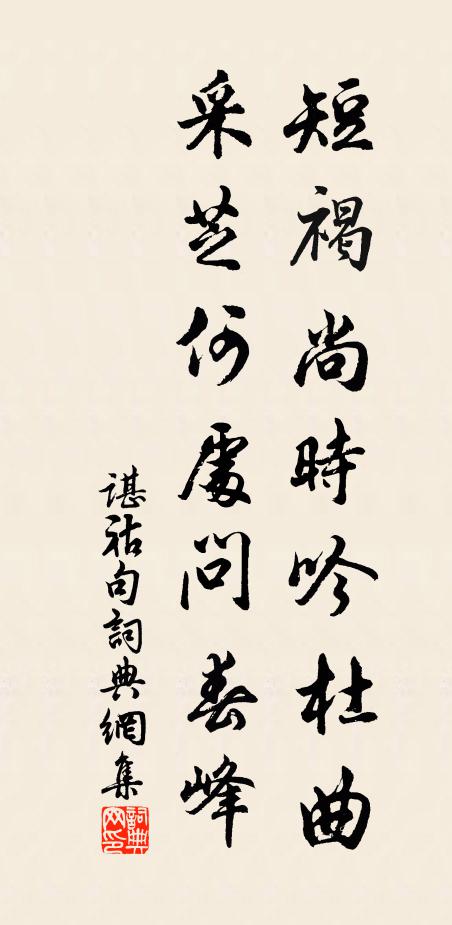 短褐尚時吟杜曲
采芝何處問春峰
諶祜句詞典網集
詞典
网印